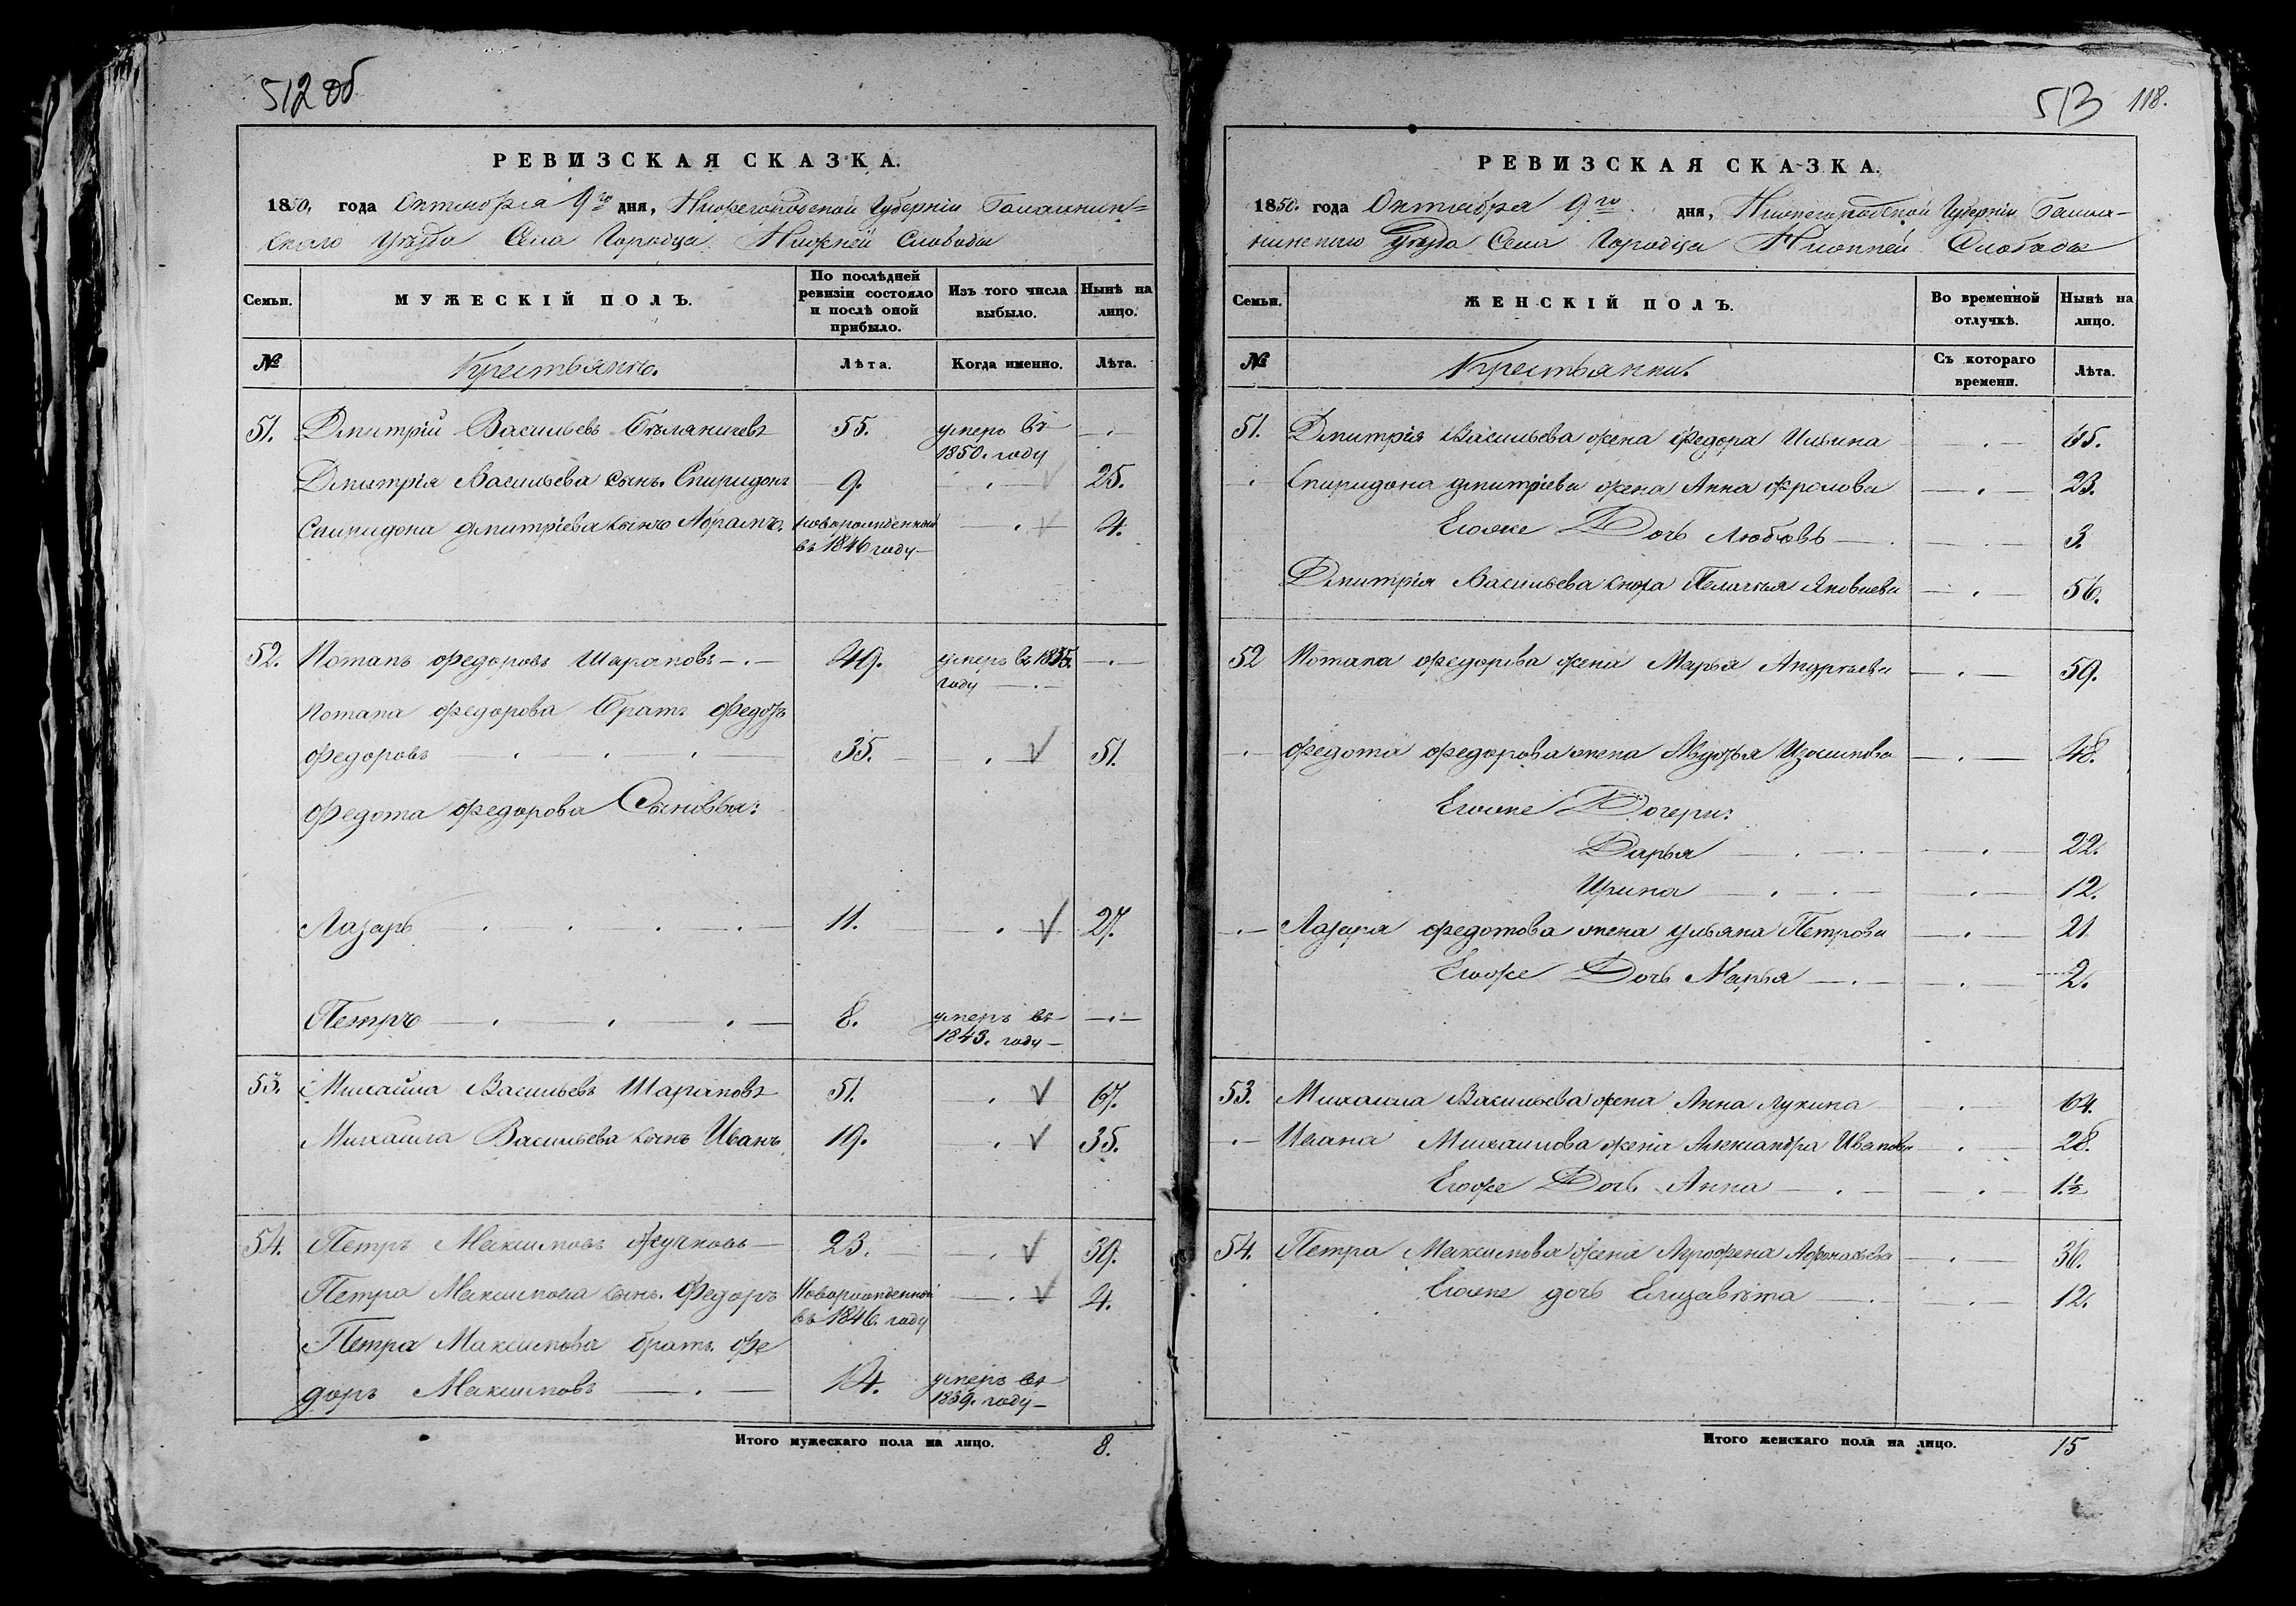 512 об
РЕВИЗСКАЯ СКАЗКА.
1850, года Октября 9го дня, Нижегородской Губерніи Балахнин-
скаго Уѣзда Села Городца Нижней Слободы
Семьи. МУЖЕСКІЙ ПОЛЪ. По послѣдней ревизіи состояло и послѣ оной прибыло. Изъ того числа выбыло. Нынѣ на лицо.
№ Крестьянъ. Лѣта. Когда именно. Лѣта.
51. Дмитрій Васильевъ Бѣляничевъ 55. умеръ въ 1850. году
Дмитрія Васильева сынъ. Спиридонъ 9. 25.
Спиридона Дмитріева сынъ Абрамъ. новорожденный въ 1846 году 4.
52. Потапъ Федоровъ Шараповъ 49. умеръ въ 1835. году
Потапа Федорова Братъ Федотъ
Федоровъ 35. 51.
Федота Федорова Сыновья:
Лазарь 11. 27.
Петръ 8. умеръ въ 1843. году
53. Михайла Васильевъ Шараповъ 51. 67.
Михайла Васильева сынъ Иванъ 19. 35.
54. Петръ Максимовъ Жучковъ 23. 39.
Петра Максимова сынъ. Федоръ Новорожденной въ 1846. году 4.
Петра Максимова братъ Фе
доръ Максимовъ 14. умеръ въ 1839. году
Итого мужескаго пола на лицо. 8.
513 118.
РЕВИЗСКАЯ СКАЗКА.
1850. года Октября 9го дня, Нижегородской Губерніи Балах-
нинскаго Уѣзда Села Городца Нижней Слободы
Семьи. ЖЕНСКІЙ ПОЛЪ. Во временной отлучкѣ. Нынѣ на лицо.
№ Крестьянки. Съ котораго времени. Лѣта.
51. Дмитрія Васильева жена Федора Ильина 65.
Спиридона Дмитріева жена Анна Фролова 23.
Егоже Дочь Любовь 3.
Дмитрія Васильева сноха Пелагея Яковлева 56.
52 Потапа Федорова жена Марья Андрѣева 59.
Федота Федорова жена Авдотья Изосимова 48.
Егоже Дочери:
Дарья 22.
Ирина 12.
Лазаря Федотова жена Ульяна Петрова 21
Егоже Дочь Марья 2.
53. Михаила Васильева жена Анна Лукина 64.
Ивана Михаилова жена Александра Иванова 28.
Егоже Дочь Анна 1½
54. Петра Максимова жена Аграфена Афонасьева 36.
Егоже дочь Елизавѣта 12.
Итого женскаго пола на лицо. 15